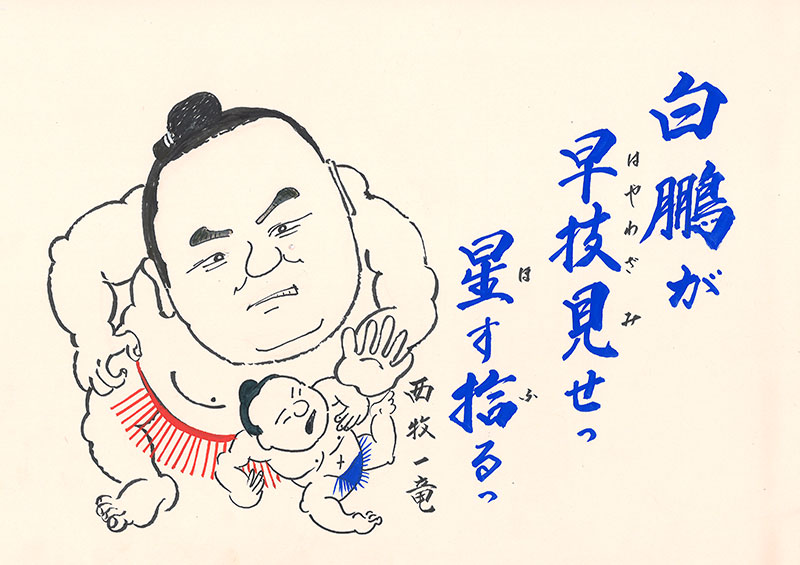 白鵬が
早技見せっ
はやわざ み
星す拾るっ
ほ ふ
西牧一竜